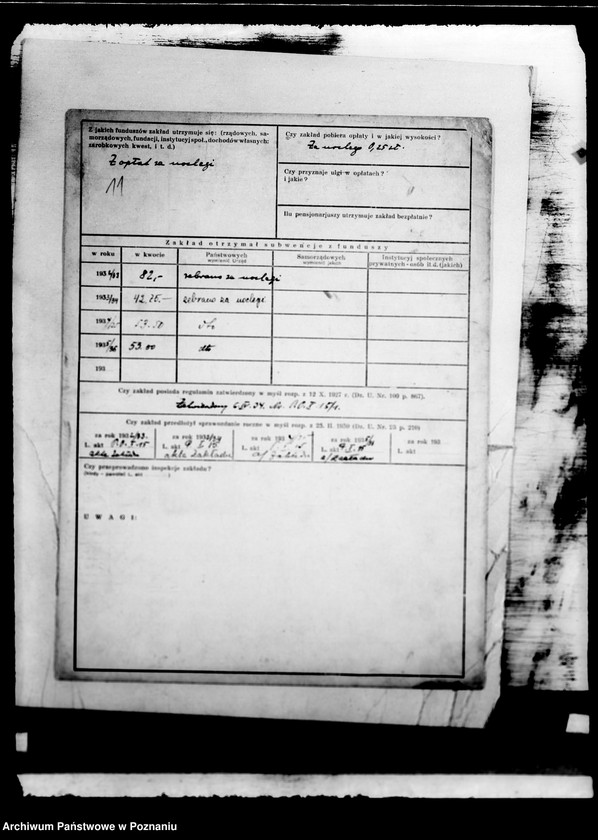 Z jakich funduszów zakład utrzymuje się: (rządowych, sa-
morządowych, fundacji, instytucyj społ., dochodów własnych:
zarobkowych kwest, i t. d.)
Z opłat za noclegi
11
Czy zakład pobiera opłaty i w jakiej wysokości?
Za nocleg 0,25 zł.
Czy przyznaje ulgi w opłatach?
i jakie?
Ilu pensjonarjuszy utrzymuje zakład bezpłatnie?
Zakład otrzymał subwencje z funduszy
w roku w kwocie Państwowych Samorządowych Instytucyj społecznych
wymienić Urząd wymienić jakich prywatnych - osób it.d. (jakich)
1932/33 82,- zebrano za noclegi
1933/34 42.75.— zebrano za noclegi
1934/35 53.50
1935/36 53.00 dto
193
Czy zakład posiada regulamin zatwierdzony w myśl rozp. z 12 X. 1927 r. (Dz. U. Nr. 100 p. 867).
Zatwierdzony
Czy zakład przedłożył sprawozdanie roczne w myśl rozp. z 25. II. 1930 (Dz. U. Nr. 25 p. 220)
za rok 1932/33. za rok 1933/34 za rok 1934/35 za rok 1935/36 za rok 193
L. akt L. akt L. akt L. akt L. akt
akta Zakładu
Czy przeprowadzono inspekcje zakładu?
UWAGI:
Archiwum Państwowe w Poznaniu